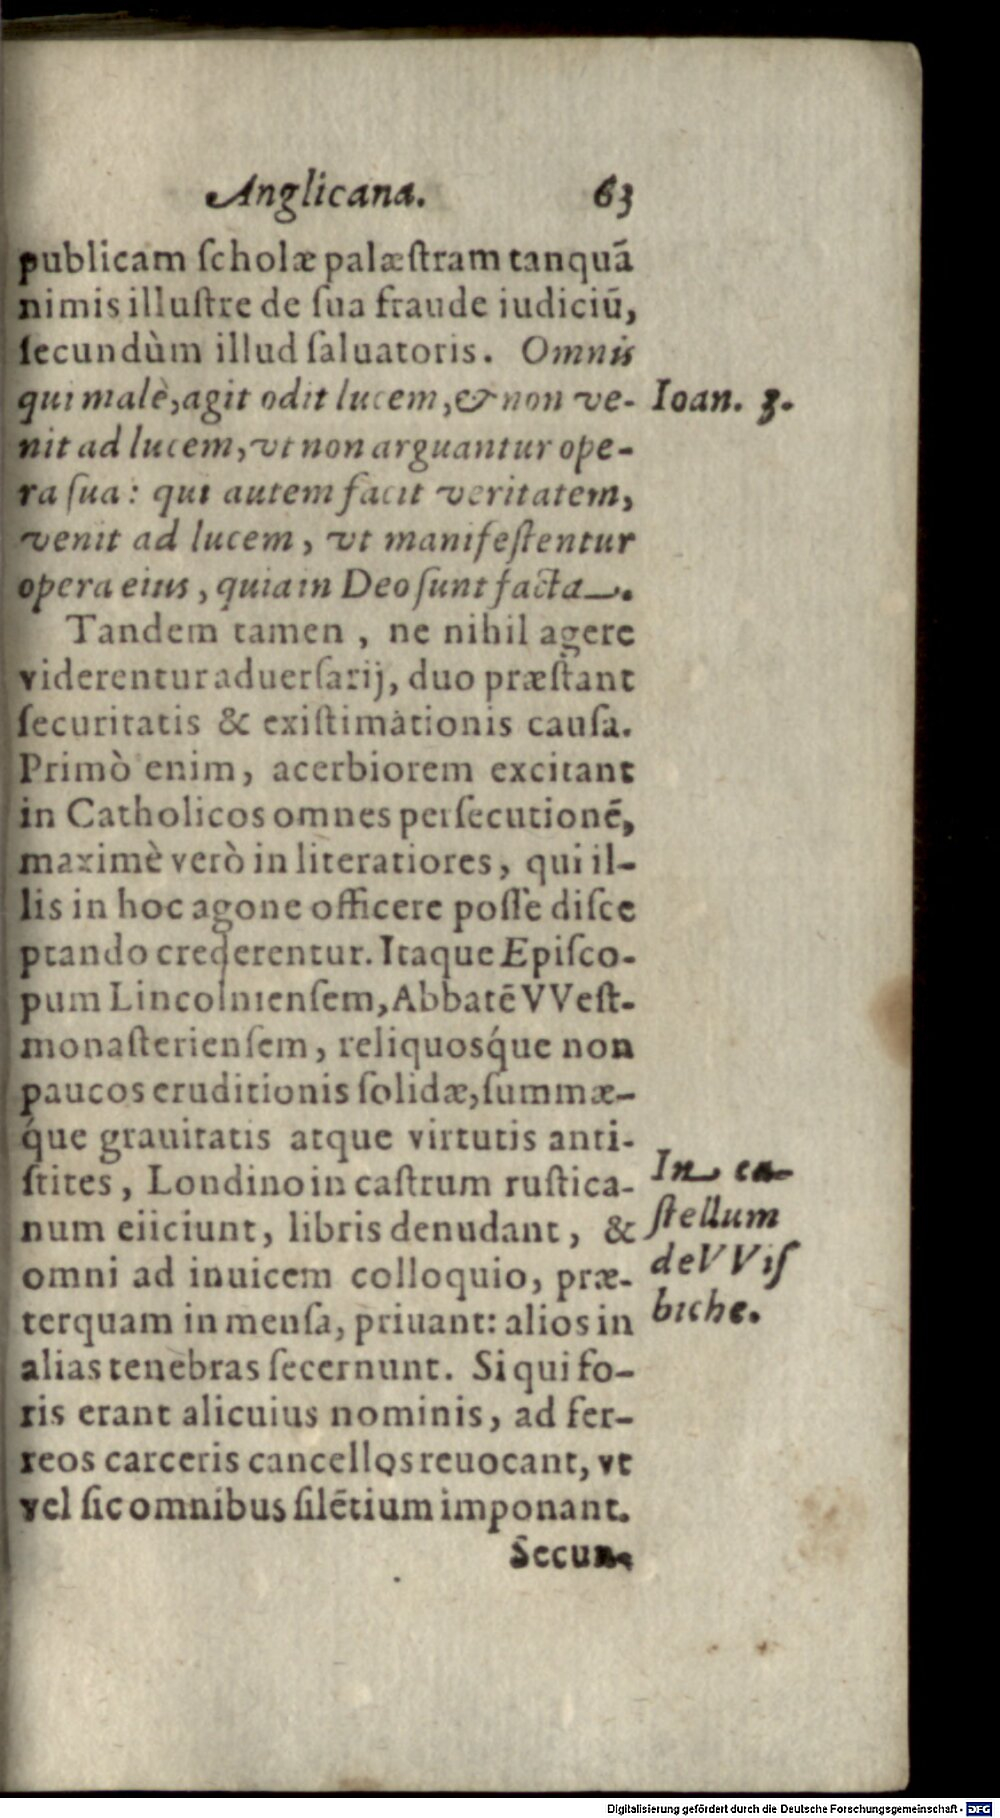 Anglicana. 63
publicam ſcholæ palæſtram tanquā
nimis illuſtre de ſua fraude iudiciū,
ſecundùm illud ſaluatoris. Omnis
qui malè, agit odit lucem, & non ve-
Ioan. 3.
nit ad lucem, vt non arguantur ope-
ra ſua: qui autem facit veritatem,
venit ad lucem, vt manifeſtentur
opera eius, quia in Deo ſunt facta.
Tandem tamen, ne nihil agere
viderentur aduerſarij, duo præſtant
ſecuritatis & exiſtimationis cauſa.
Primò enim, acerbiorem excitant
in Catholicos omnes perſecutionē,
maximè verò in literatiores, qui il-
lis in hoc agone officere poſſe diſce
ptando crederentur. Itaque Epiſco-
pum Lincolnienſem, Abbatē VVeſt-
monaſterienſem, reliquosq́ue non
paucos eruditionis ſolidæ, ſummæ-
q́ue grauitatis atque virtutis anti-
ſtites, Londino in caſtrum ruſtica-
num eiiciunt, libris denudant, &
omni ad inuicem colloquio, præ-
terquam in menſa, priuant: alios in
alias tenebras ſecernunt. Si qui fo-
ris erant alicuius nominis, ad fer-
reos carceris cancellos reuocant, vt
vel ſic omnibus ſilētium imponant.
In ca-
ſtellum
de VViſ
biche.
Secun-
Digitalisierung gefördert durch die Deutsche Forschungsgemeinschaft - DFG